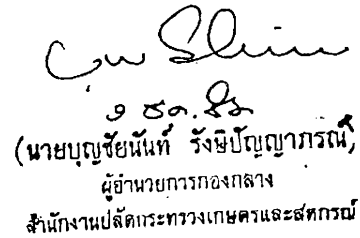 (นายบุญชัยนันท์ รังษิปัญญาภรณ์)
ผู้อำนวยการกองกลาง
สำนักงานปลัดกระทรวงเกษตรและสหกรณ์